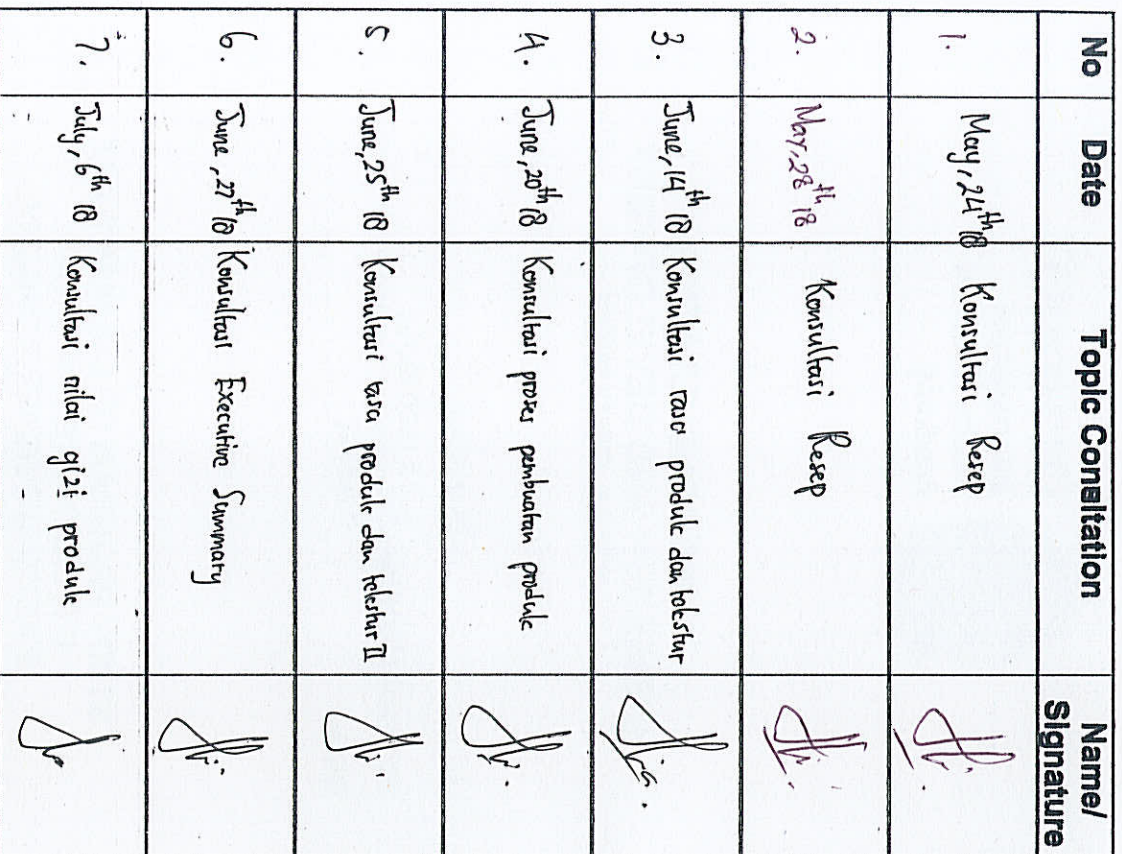 No Date Topic Consltation Name/
Signature
1. May, 24th 18 Konsultasi Resep
2. May, 28th 18 Konsultasi Resep
3. June, 14th 18 Konsultasi rasa produk dan tekstur
4. June, 20th 18 Konsultasi proses pembuatan produk
5. June, 25th 18 Konsultasi rasa produk dan tekstur II
6. June, 27th 18 Konsultasi Executive Summary
7. July, 6th 18 Konsultasi nilai gizi produk